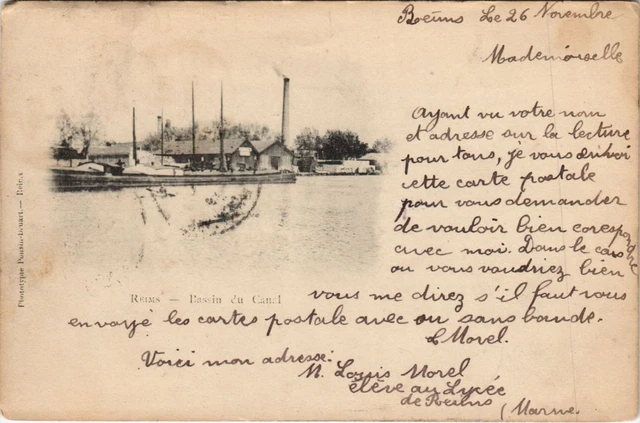 Reims Le 26 Novembre
Mademoiselle
Ayant vu votre nom
et adresse sur la lecture
pour tous, je vous
cette carte postale
pour vous demander
de vouloir bien corespondre
avec moi. Dans le cas
ou vous voudriez bien
vous me direz s'il faut vous
envoyé les cartes postale avec ou sans bande.
L Morel.
Voici mon adresse:
M. Louis Morel
élève au Lycée
de Reims
(Marne.
REIMS — Bassin du Canal
Phototypie — Reims